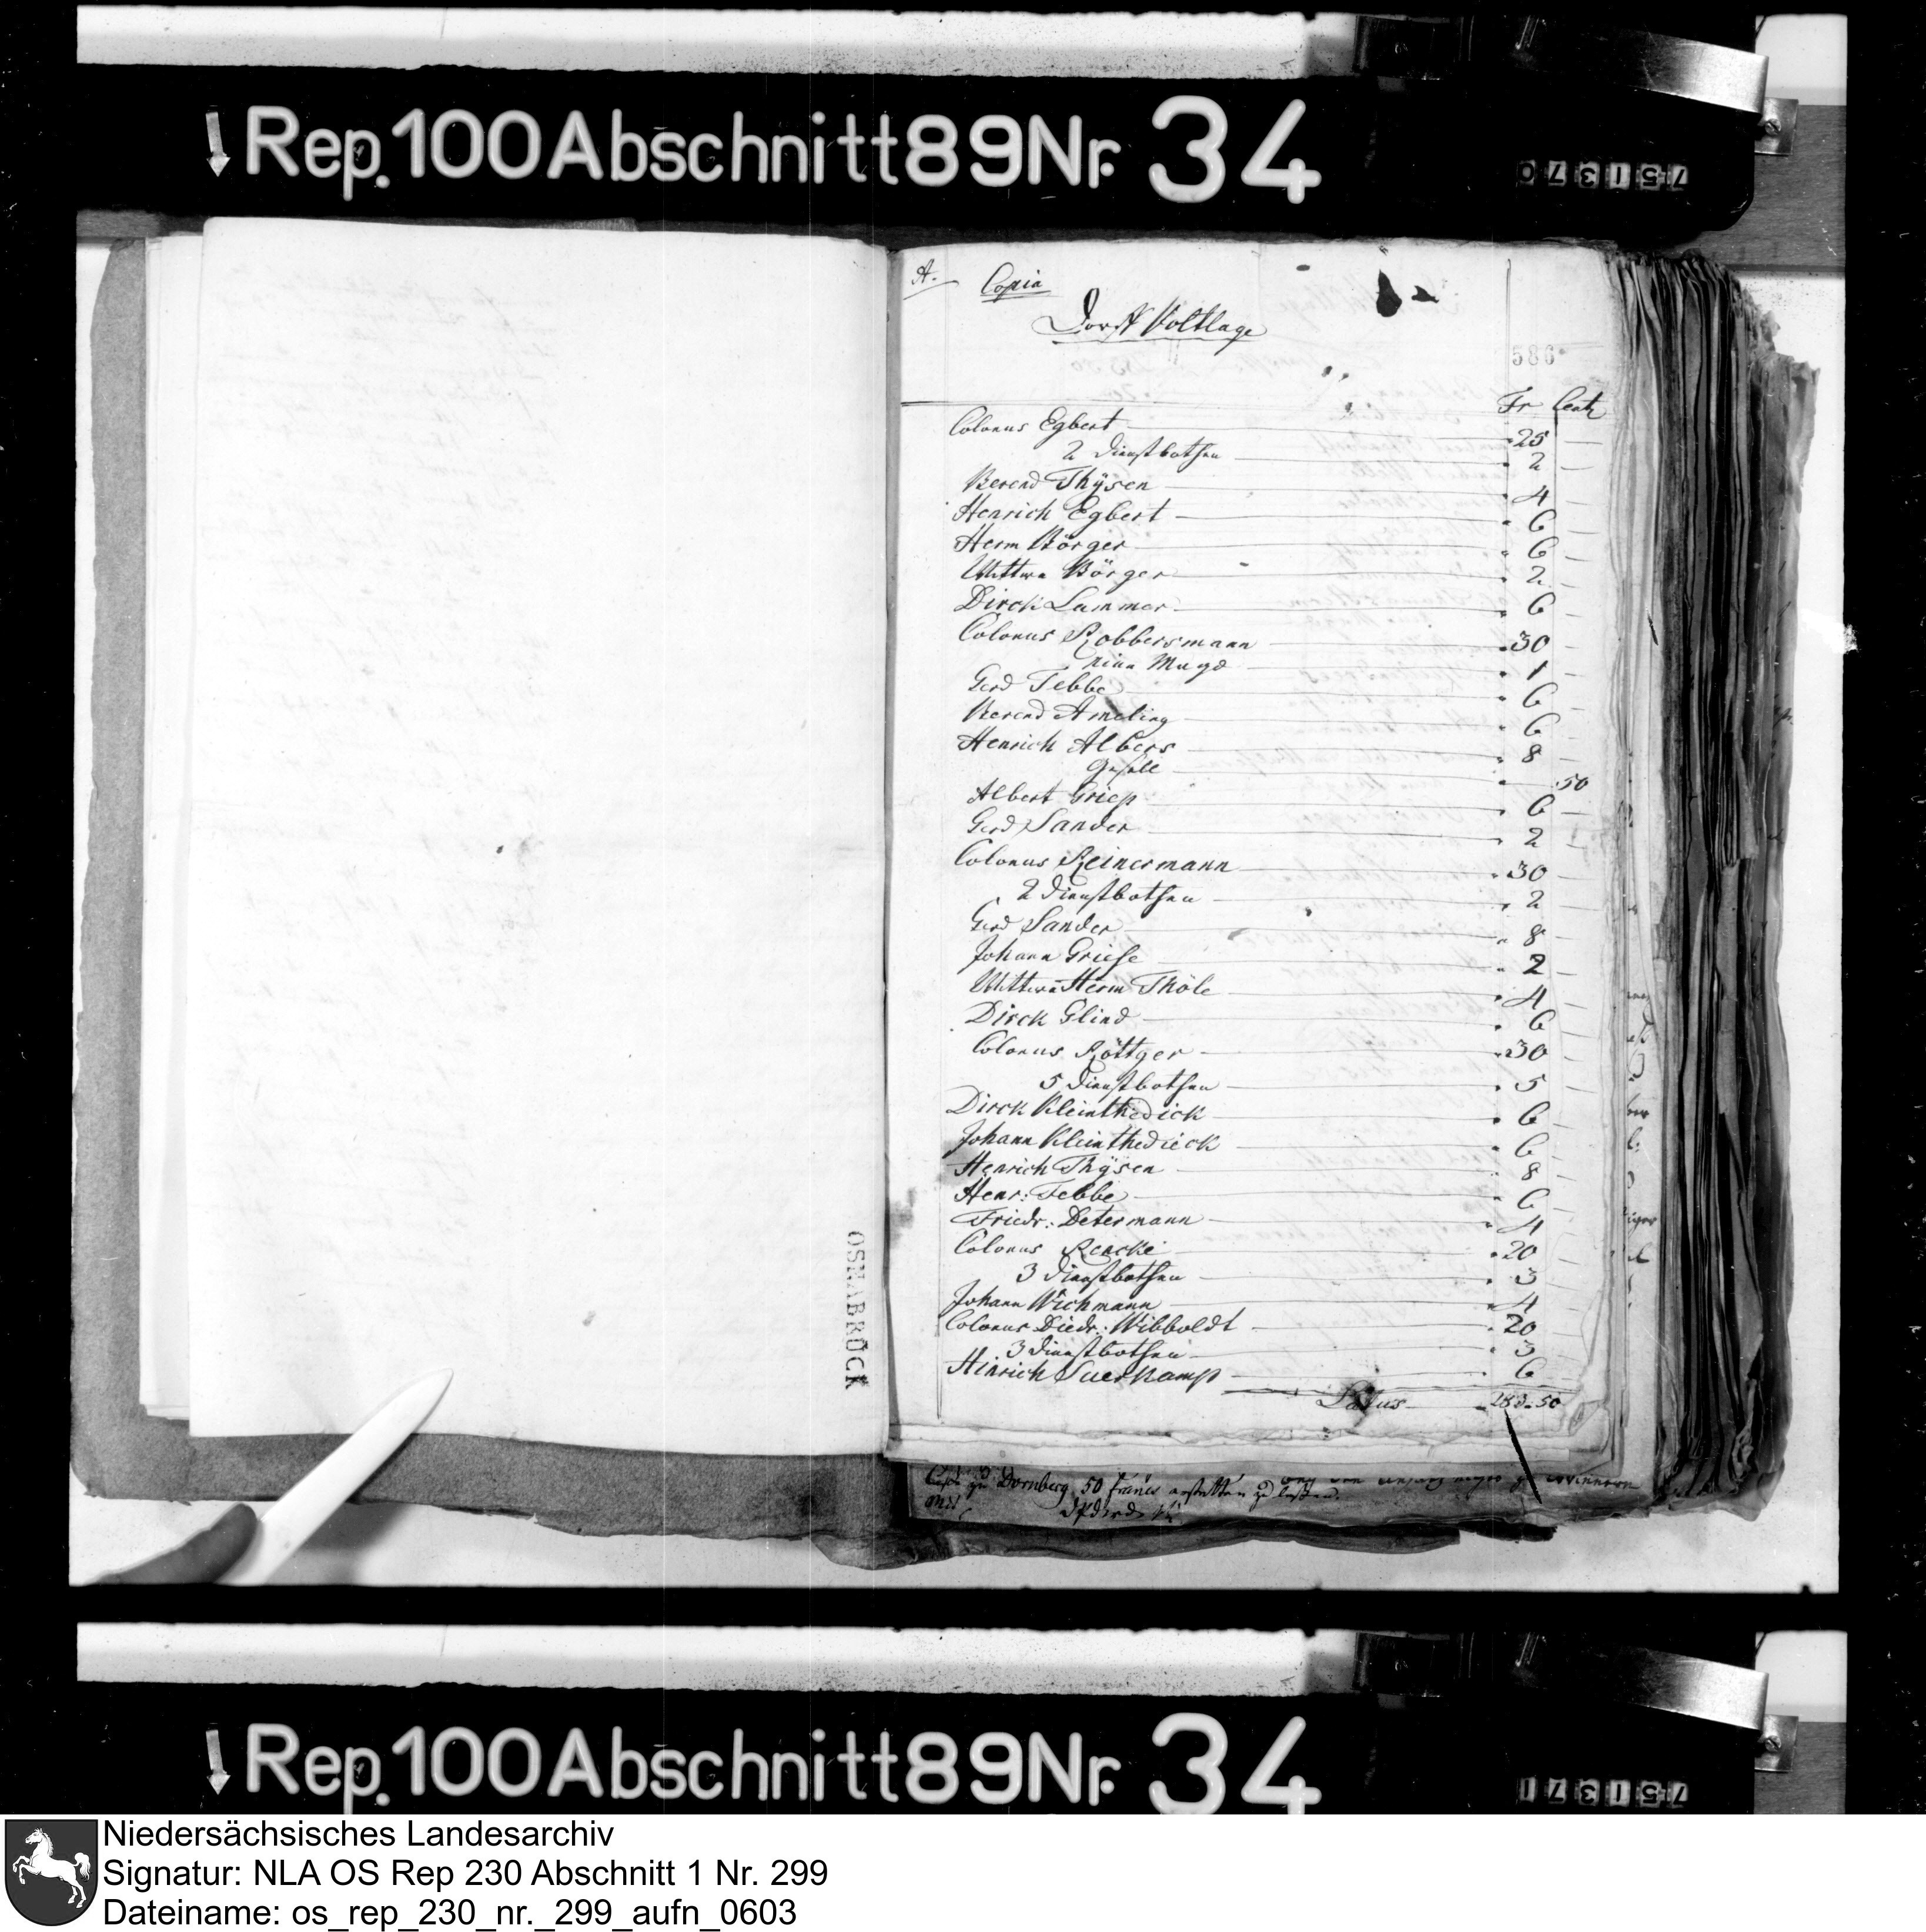 Rep. 100 Abschnitt 89 Nr. 34
751370
A.
Copia
Dorff Voltlage
586
Fr Cent
Colonus Egbert 25 —
2 Dienstbothen 2 —
Berend Thÿsen 4 —
Henrich Egbert 6 —
Herm Börger 6 —
Wittwe Börger 2 —
Dirck Lammer 6 —
Colonus Robbersmann 30 —
eine Magd 1 —
Gerd Tebbe 6 —
Berend Ameling 6 —
Henrich Albers 8 —
Gesell — 50
Albert Griep 6 —
Gerd Sander 2 —
Colonus Reinermann 30 —
2 Dienstbothen 2 —
Gerd Sander 8 —
Johann Griese 2 —
Wittwe Herm Thöle 4 —
Dirck Glind 6 —
Colonus Röttger 30 —
5 Dienstbothen 5 —
Dirck Kleinthedick 6 —
Johann Kleinthedieck 6 —
Henrich Thÿsen 8 —
Henr: Tebbe 6 —
Friedr: Determann 4 —
Colonus Rencke 20
3 Dienstbothen 3
Johann Wichmann 4
Colonus Diedr: Wibboldt 20
3 Dienstbothen 3
Hinrich Suerkamp 6
Latus 283 - 50
OSNABRÜCK
zu Dornberg 50 francs
Rep. 100 Abschnitt 89 Nr. 34
751371
Niedersächsisches Landesarchiv
Signatur: NLA OS Rep 230 Abschnitt 1 Nr. 299
Dateiname: os_rep_230_nr._299_aufn_0603